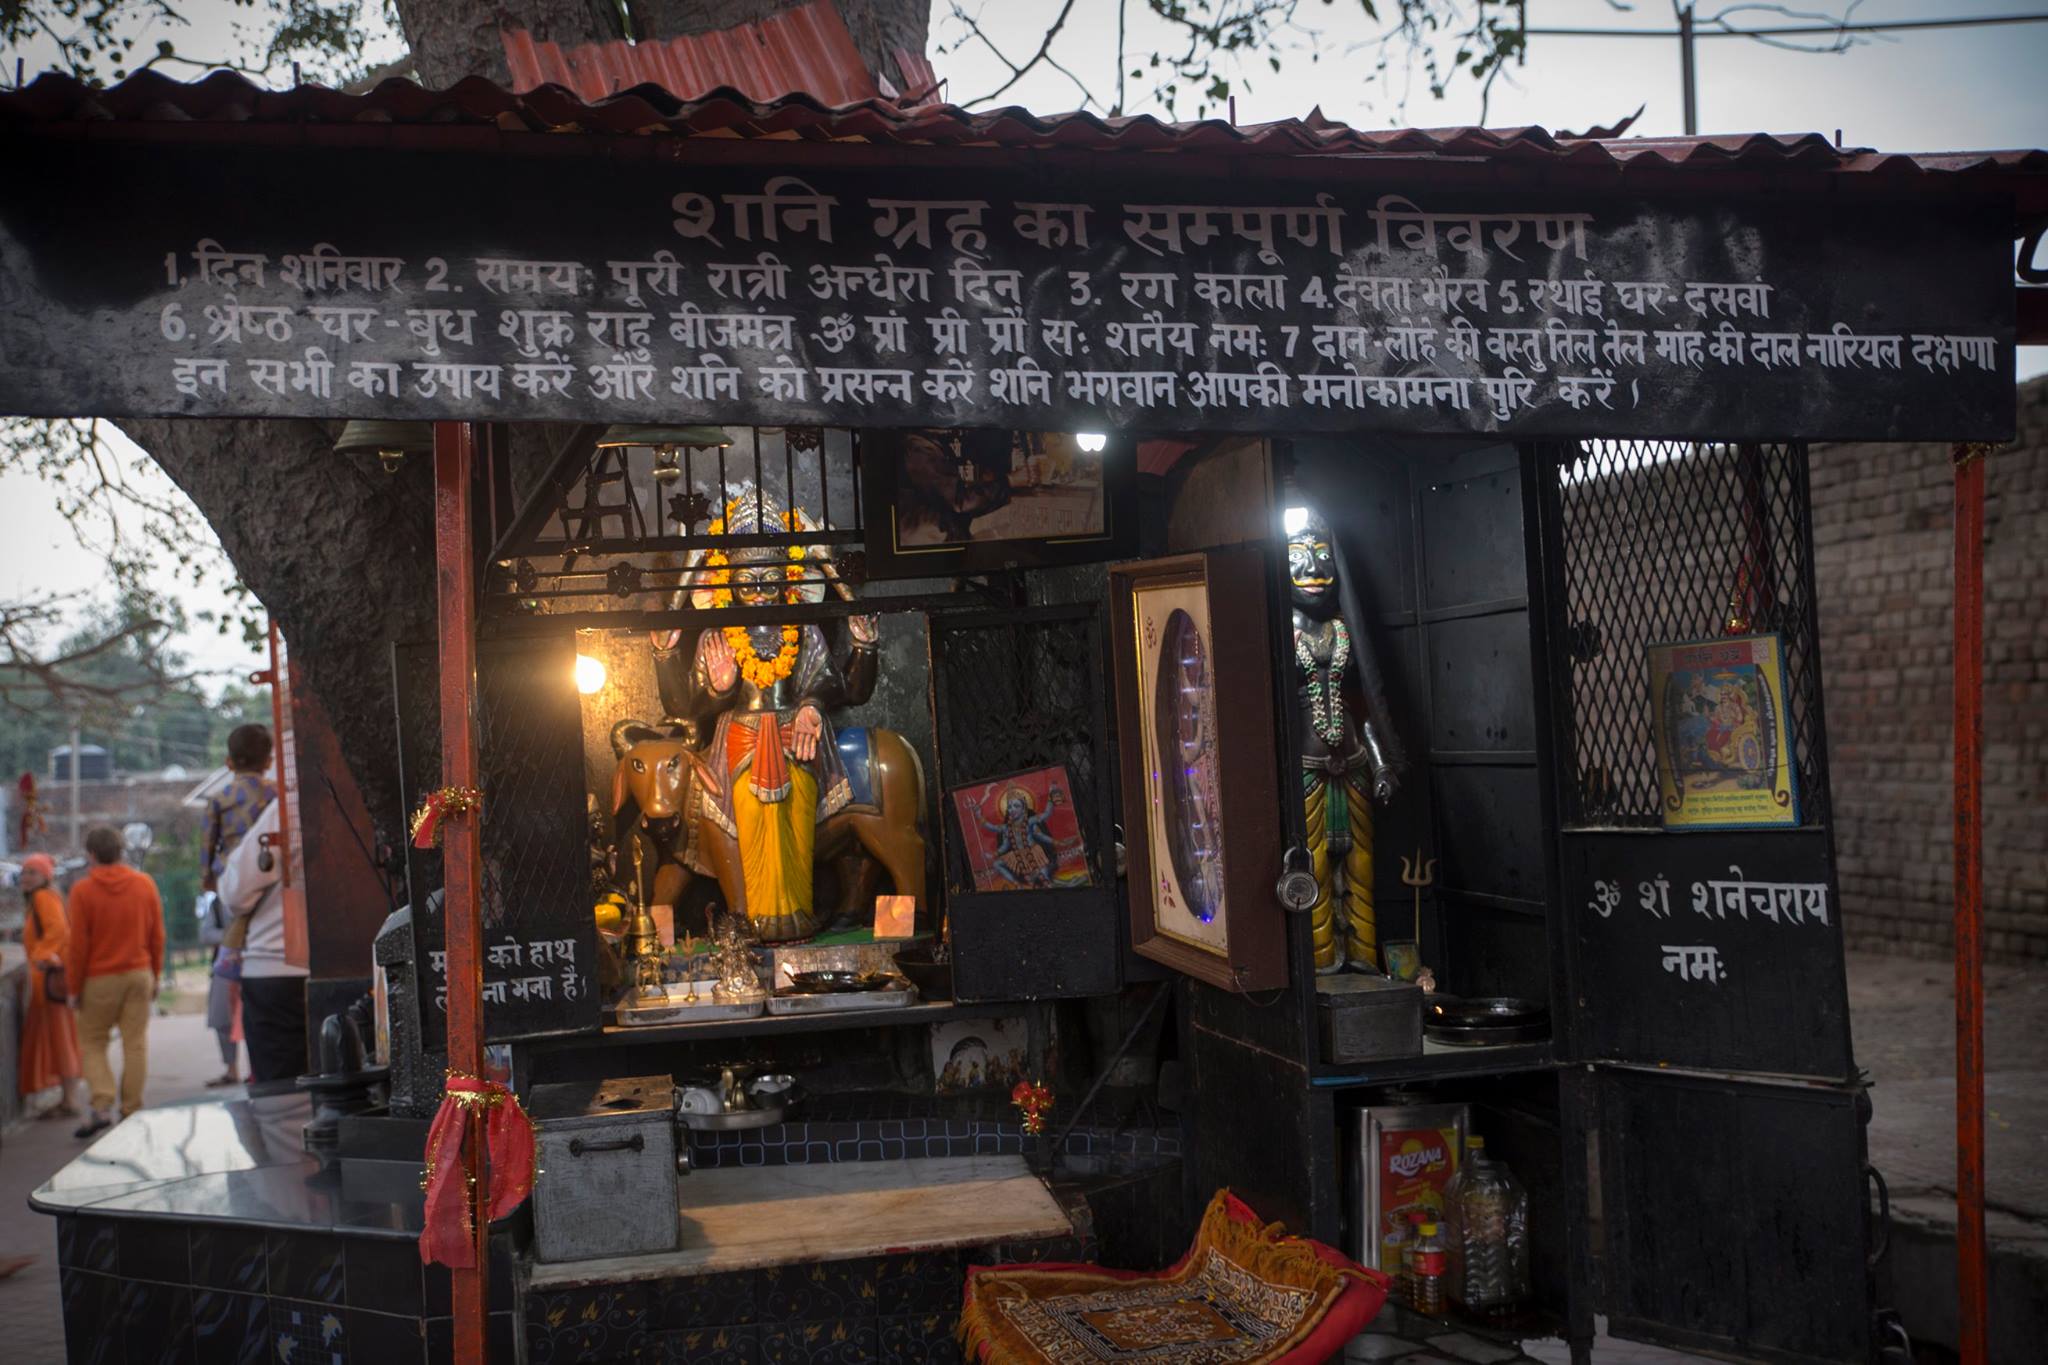 शनि ग्रह का सम्पूर्ण विवरण
1, दिन शनिवार 2. समयः पूरी रात्री अन्धेरा दिन 3. रग काला 4.देवता भैरव 5.स्थाई घर-दसवां
6. श्रेष्ठ घर-बुध शुक्र राहु बीजमंत्र ॐ प्रां प्री प्रौ सः शनैय नमः 7 दान-लोहे की वस्तु तिल तेल मांह की दाल नारियल दक्षणा
इन सभी का उपाय करें और शनि को प्रसन्न करें शनि भगवान आपकी मनोकामना पुरि करें ।
को हाथ
मना है।
ॐ शं शनेचराय
नमः
ROZANA